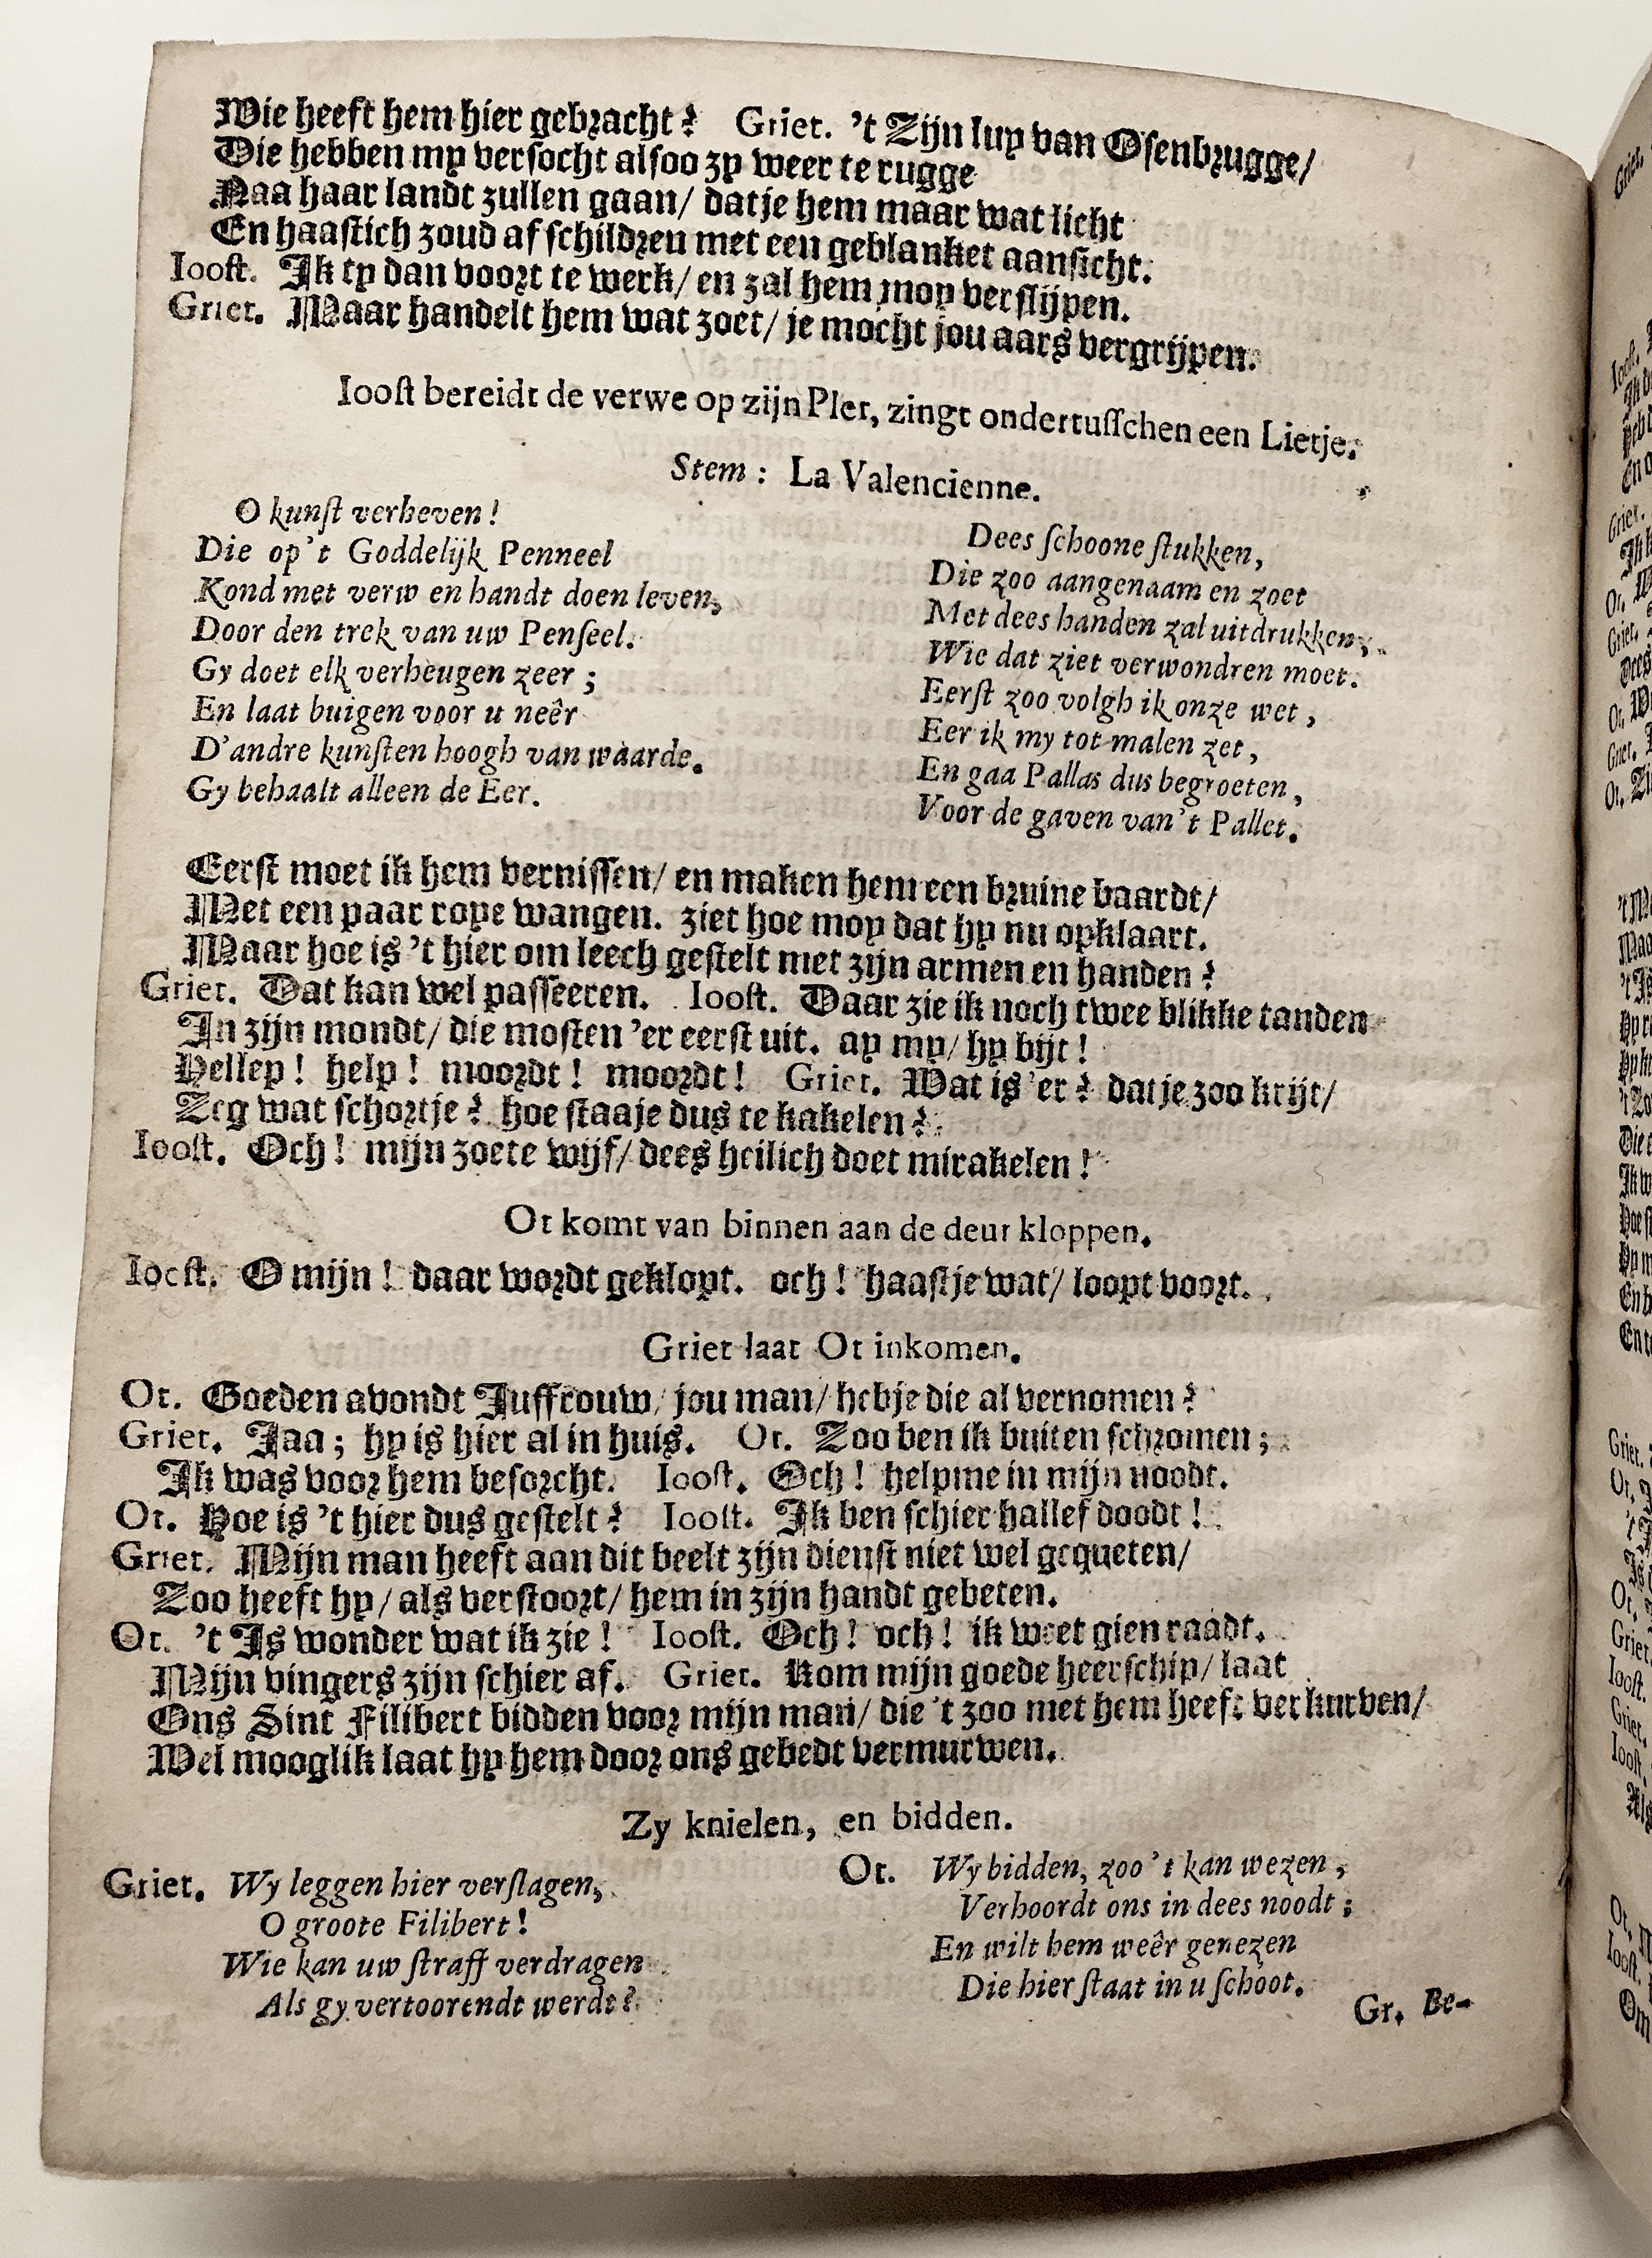 Wie heeft hem hier gebracht? Griet. 't Zijn luy van Osenbrugge/
Die hebben my versocht alsoo zy weer te rugge
Naa haar landt zullen gaan/ datje hem maar wat licht
En haastich zoud af schildren met een geblanket aansicht.
Ioost. Ik ty dan voort te werk/ en zal hem moy verslijpen.
Griet. Maar handelt hem wat zoet/ je mocht jou aars vergrijpen.
Ioost bereidt de verwe op zijn Plet, zingt ondertusschen een Lietje.
Stem: La Valencienne.
O kunst verheven!
Die op't Goddelijk Penneel
Kond met verw en handt doen leven,
Door den trek van uw Penseel.
Gy doet elk verheugen zeer;
En laat buigen voor u neêr
D'andre kunsten hoogh van waarde.
Gy behaalt alleen de Eer.
Dees schoone stukken,
Die zoo aangenaam en zoet
Met dees handen zal uitdrukken,
Wie dat ziet verwondren moet.
Eerst zoo volgh ik onze wet,
Eer ik my tot malen zet,
En gaa Pallas dus begroeten,
Voor de gaven van't Pallet.
Eerst moet ik hem vernissen/ en maken hem een bruine baardt/
Met een paar roye wangen. ziet hoe moy dat hy nu opklaart.
Maar hoe is 't hier om leech gestelt met zijn armen en handen?
Griet. Dat kan wel passeeren. Ioost. Daar zie ik noch twee blikke tanden
In zijn mondt/ die mosten 'er eerst uit. ay my/ hy bijt!
Hellep! help! moordt! moordt! Griet. Wat is 'er? datje zoo krijt/
Zeg wat schortje? hoe staaje dus te kakelen?
Ioost. Och! mijn zoete wijf/ dees heilich doet mirakelen!
Ot komt van binnen aan de deur kloppen.
Ioost. O mijn! daar wordt geklopt. och! haastje wat/ loopt voort.
Griet laat Ot inkomen.
Ot. Goeden avondt Juffrouw/ jou man/ hebje die al vernomen?
Griet. Jaa; hy is hier al in huis. Ot. Zoo ben ik buiten schromen;
Ik was voor hem besorcht. Ioost. Och! help me in mijn noodt.
Ot. Hoe is 't hier dus gestelt? Ioost. Ik ben schier hallef doodt!
Griet. Mijn man heeft aan dit beelt zijn dienst niet wel gequeten/
Zoo heeft hy/ als verstoort/ hem in zijn handt gebeten.
Ot. 't Is wonder wat ik zie! Ioost. Och! och! ik weet gien raadt.
Mijn vingers zijn schier af. Griet. Kom mijn goede heerschip/ laat
Ons Sint Filibert bidden voor mijn man/ die 't zoo met hem heeft verkurven/
Wel mooglik laat hy hem door ons gebedt vermurwen.
Zy knielen, en bidden.
Griet. Wy leggen hier verslagen,
O groote Filibert!
Wie kan uw straff verdragen
Als gy vertoorendt werdt?
Ot. Wy bidden, zoo 't kan wezen,
Verhoordt ons in dees noodt;
En wilt hem weêr genezen
Die hier staat in u schoot.
Gr. Be-